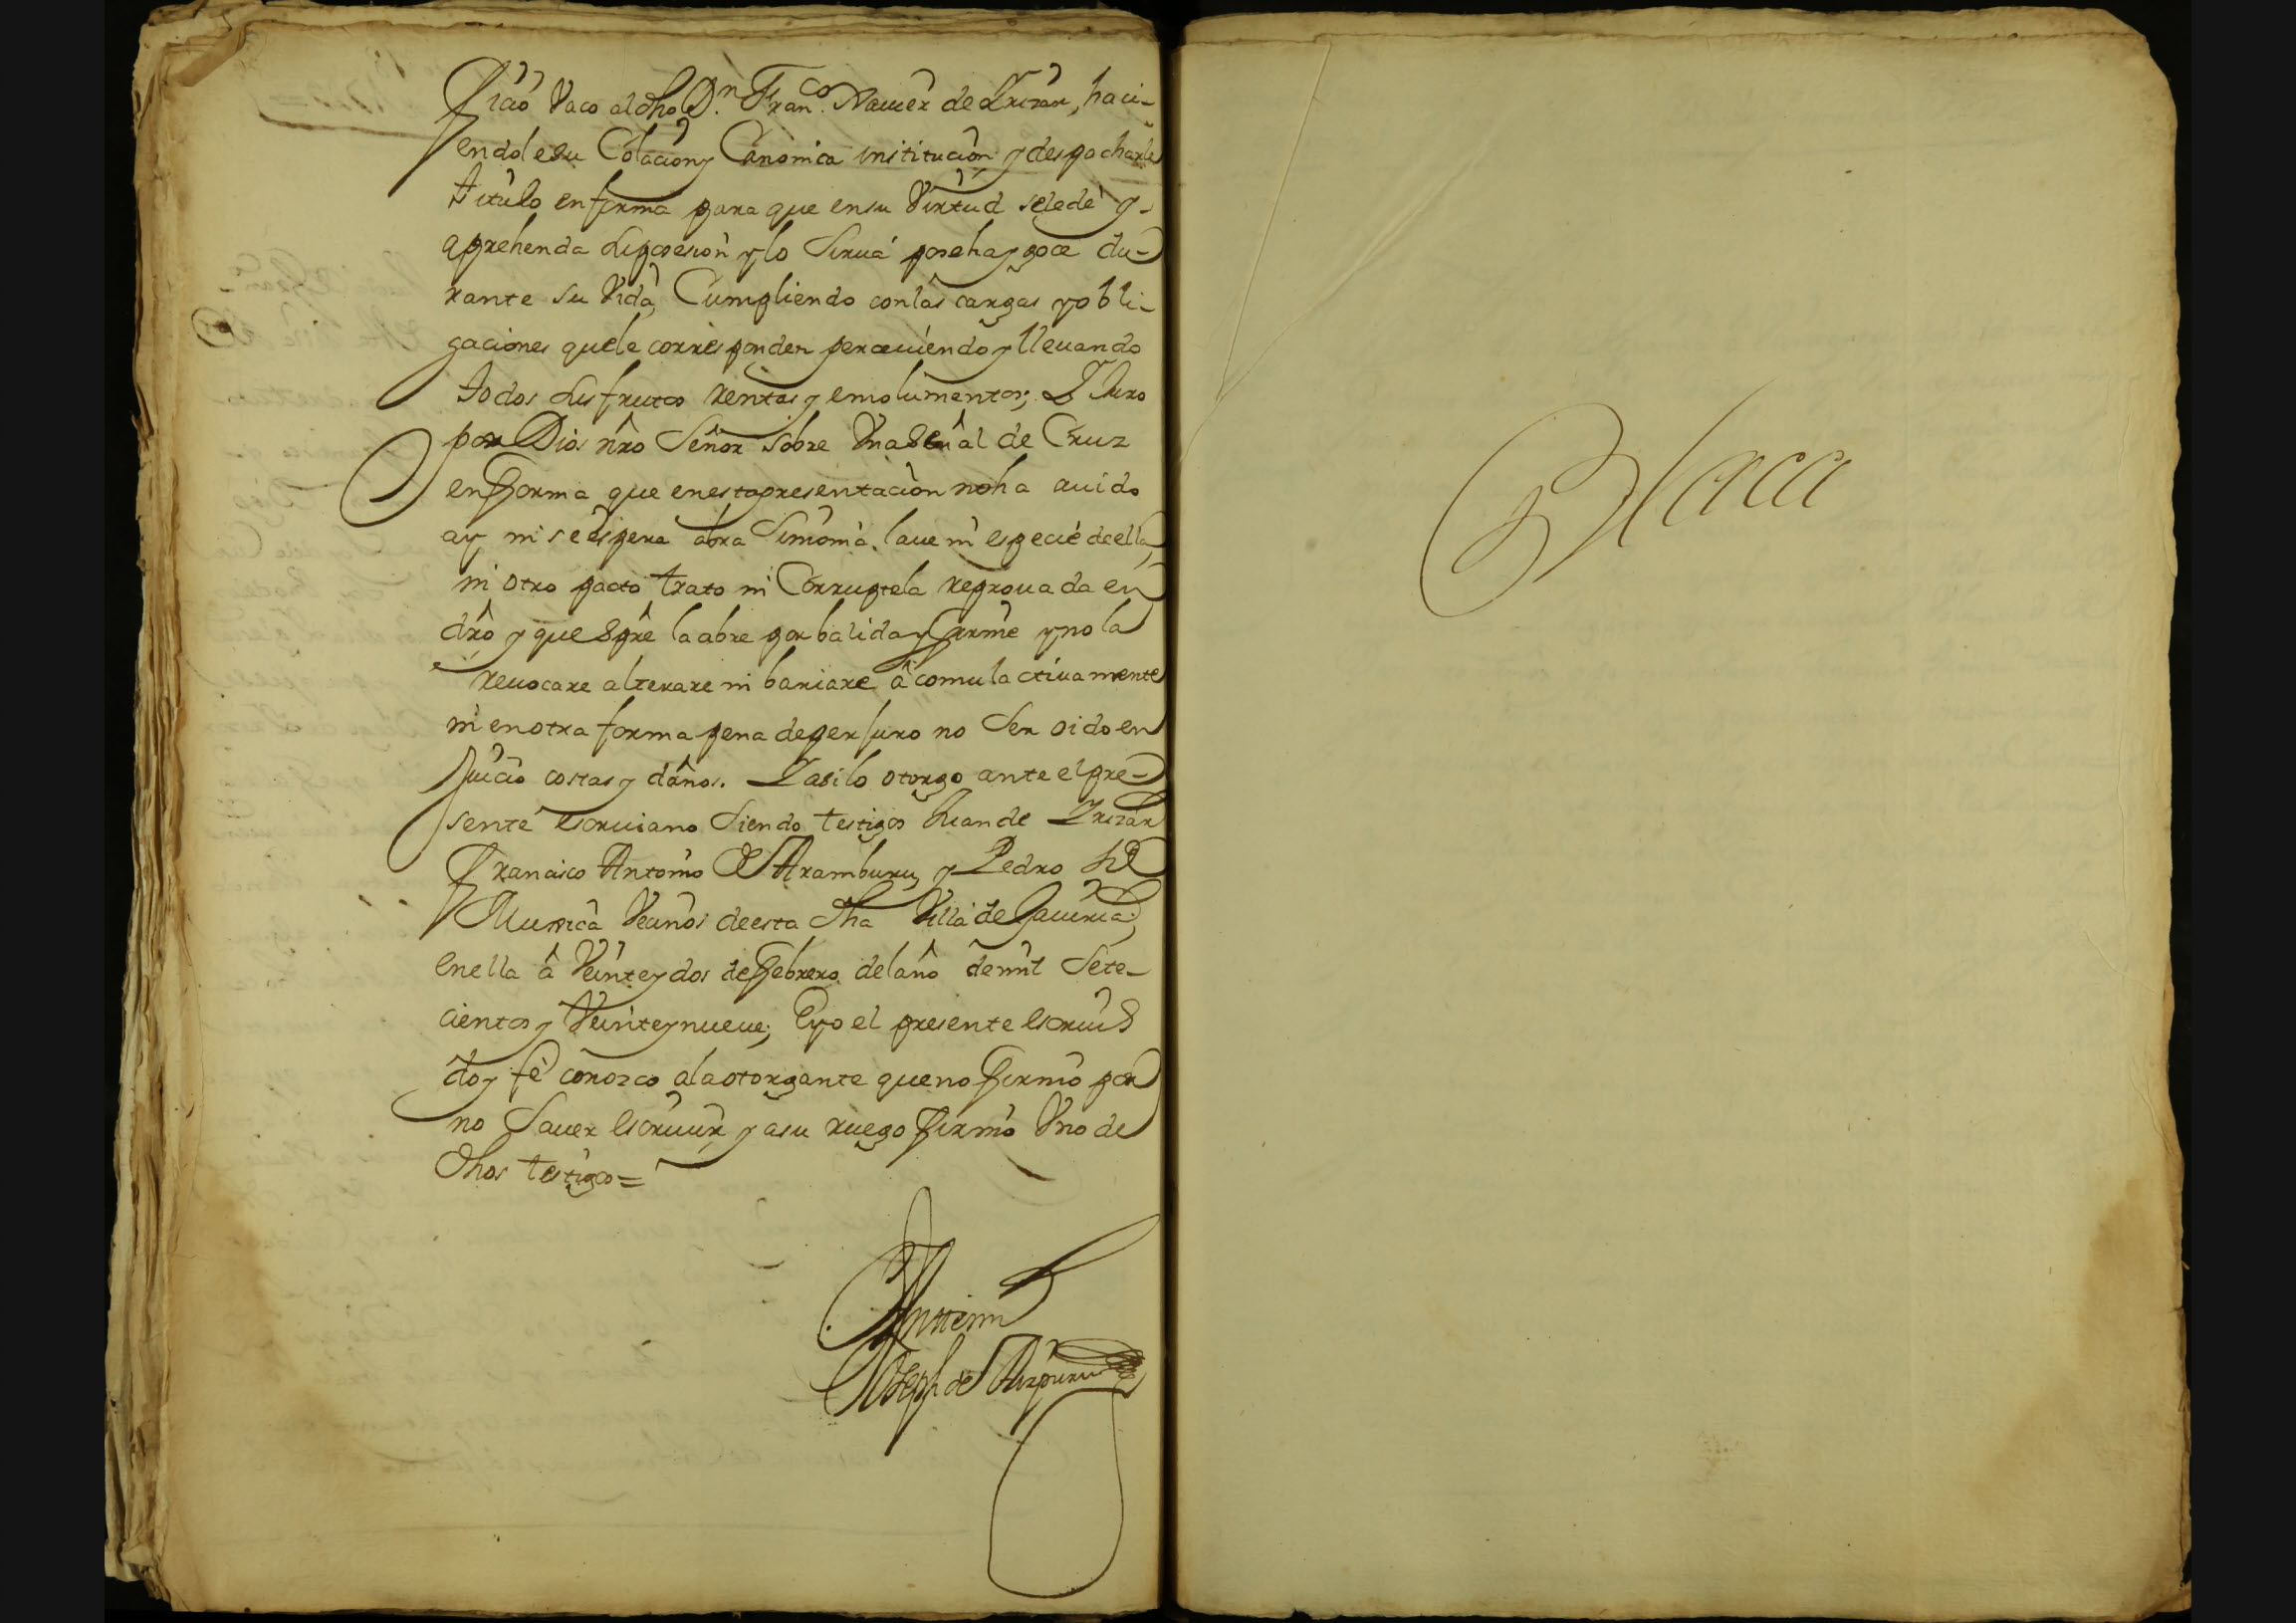 ficio Vaco al dho Dn. Franco. Xauier de Yrizar, haci-
endole su Colacion y Canonica institucion y despacharle
titulo en forma para que en su Virtud se le dè y
aprehenda su posesion y lo Sirua poseha y goce du-
rante su Vida, Cumpliendo con las cargas y obli-
gaciones que le corresponden perceuiendo y lleuando
todos sus frutos rentas y emolumentos; Y Juro
por Dios nro Señor sobre Una Señal de Cruz
en forma que en esta presentacion no ha auido
ay ni se espera abra Simonia, laue ni especie de ella,
ni otro pacto trato ni Corruptela reprouada en
dro y que Spre la abre por balida y firme y no la
reuocare alterare ni bariare â comulactiuamente
ni en otra forma pena de perjuro no Ser oido en
Juicio costas y daños. Y asi lo otorgo ante el pre-
sente escriuano Siendo testigos Juan de Yrizar
Francisco Antonio de Aramburu, y Pedro de
Muxica Vecinos de esta dha Villa de Gauiria;
en ella â Veinte y dos de febrero del año de mil Sete-
cientos y Veinte y nueue; E yo el presente escriuo
doy fè conozco a la otorgante que no firmò por
no Sauer escriuir y a su ruego firmò Vno de
dhos testigos=
Ante mi
Joseph de Aizpuru
Blaca